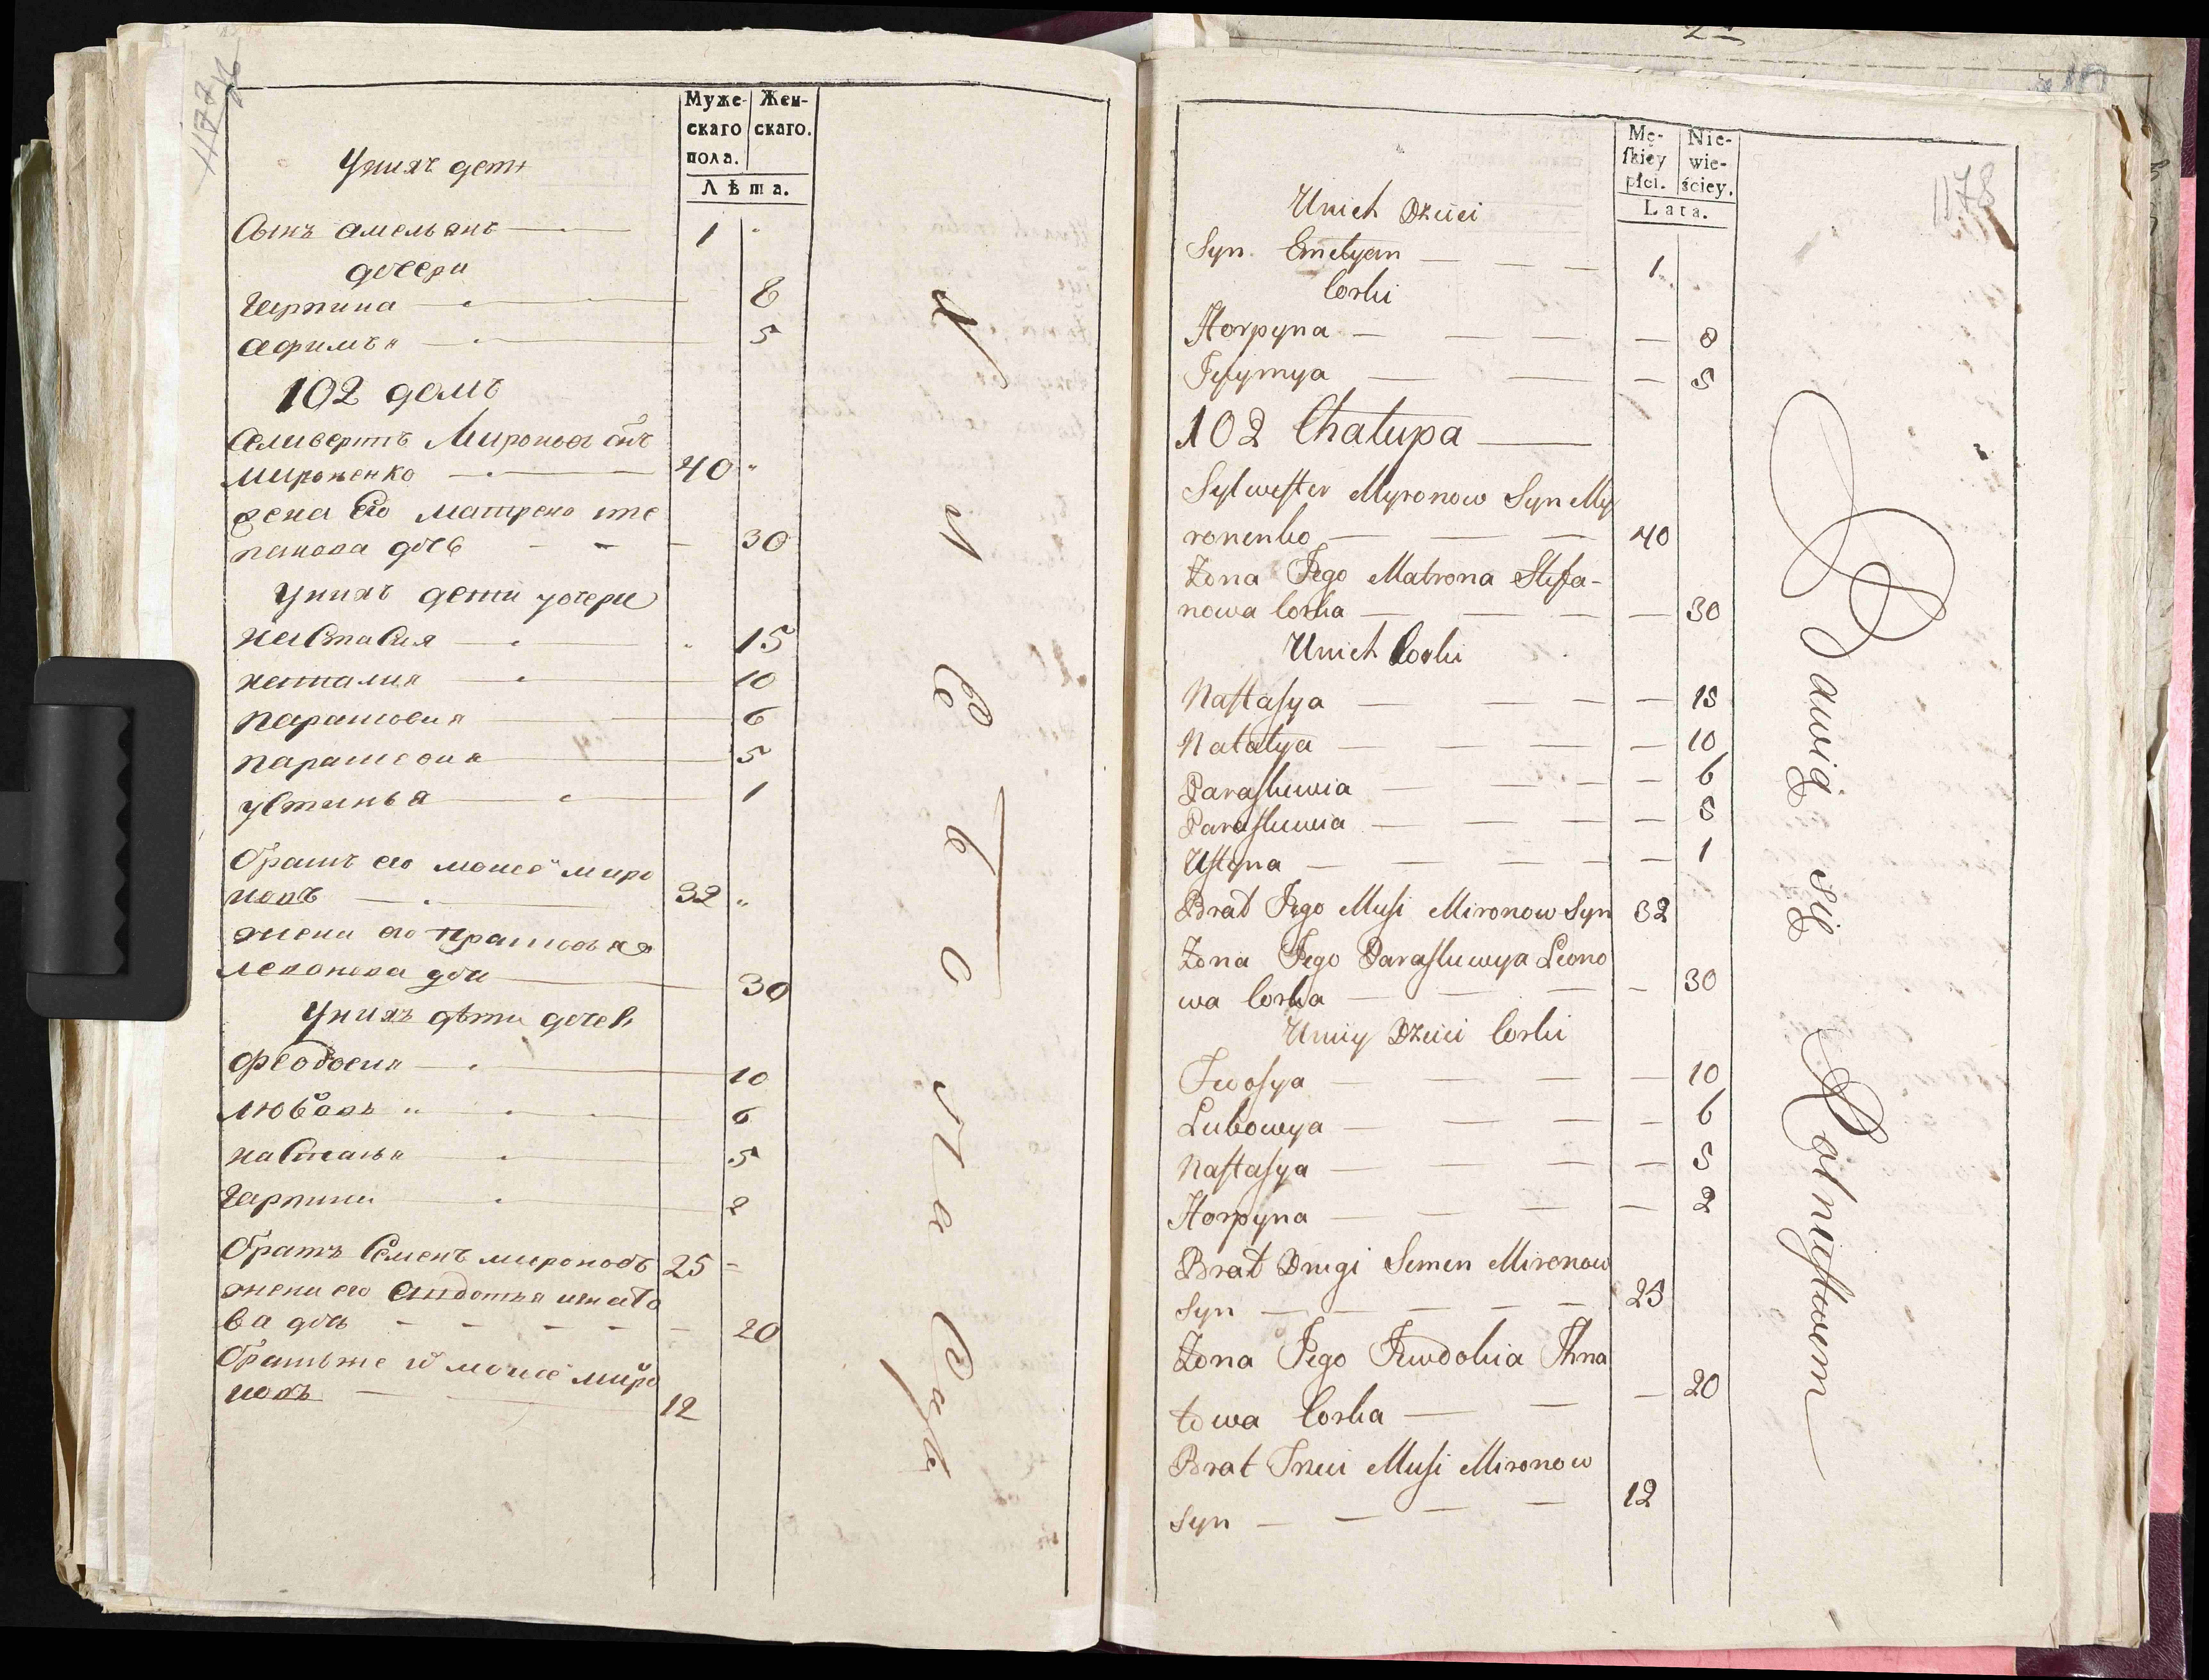 1177
Муже-
скаго
пола.
Жен-
скаго.
Лѣта.
Унихъ дети
Сынъ амельянъ 1
дочери
Гарпина 8
афимья 5
102 домъ
Селивертъ Мироновъ снъ
Мироненко 40
жена Его матрена сте
панова дочь 30
Унихъ дети дочери
настасия 15
наталия 10
парасковия 6
парасковия 5
устинья 1
братъ его моисе миро
новъ 32
жена его прасковья
леонова дочь 30
Унихъ дѣти дочеры
феодосия 10
любовь 6
настасья 5
Гарпина 2
братъ Семенъ мироновъ 25
жена его евдотья игнато
ва дочь 20
братъ же его моисе миро
новъ 12
1178
Mę-
skiey
płci.
Nie-
wie-
ściey.
Lata.
Unich Dzieci
Syn Emelyan 1
Corki
Horpyna 8
Jefymya 5
102 Chałupa
Sylwester Myronow Syn My
ronenko 40
Żona Jego Matrona Stefa-
nowa Corka 30
Unich Corki
Nastasya 15
Natalya 10
Paraskiewia 6
Paraskiewia 5
Ustyna 1
Brat Jego Musi Mironow Syn 32
Żona Jego Paraskiewya Leono
wa Corka 30
Uniy Dzieci Corki
Fwosya 10
Lubowya 6
Nastasya 5
Horpyna 2
Brat Drugi Semen Mironow
Syn 25
Żona Jego Jewdokia Ihna
towa Corka 20
Brat Trzeci Musi Mironow
Syn 12
Bawią się Rolnictwem